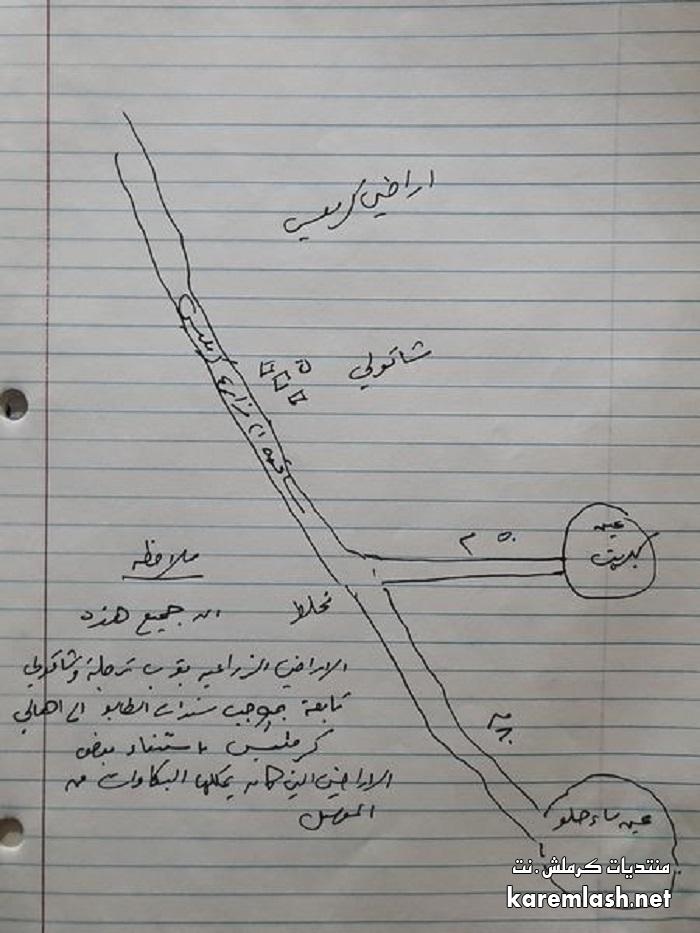 اراضي كرمليس
شاقولي
ساقية الى مزارع كرمليس
عين
كبريت
٥٠ م
ملاحظه
تختلط
ان جميع هذه
الاراضي الزراعيه بقرب ترجلة وشاقولي
تابعة بموجب سندات الطابو الى اهالي
كرمليس باستثناء بعض
الاراضي التي كان يمتلكها البكاوات من
الموصل
عين ماء حلو
منتديات كرملش.نت
karemlash.net